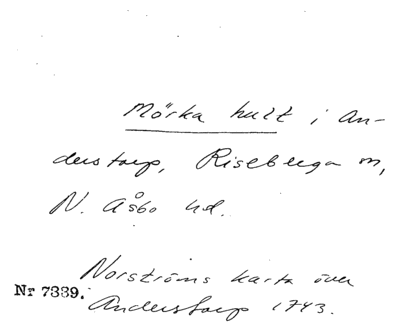 Mörka hult i An-
derstorp, Riseberga sn,
N. Åsbo hd.
Norströms karta över
Nr 7339.
Anderstorp 1743.